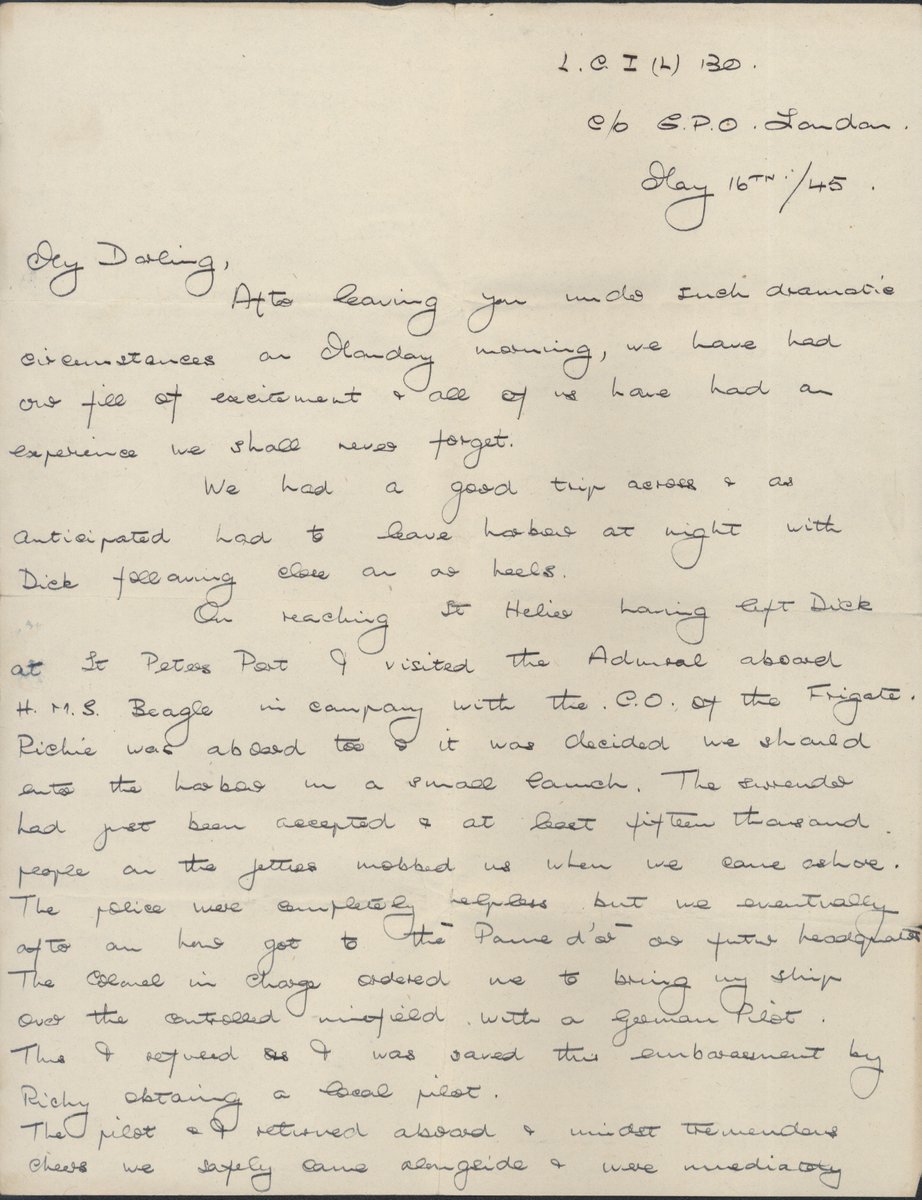 L. C. I (L) 130.
c/o G.P.O. London.
May 16TH/45.
My Darling,
After leaving you under such dramatic
circumstances on Monday morning, we have had
our fill of excitement & all of us have had an
experience we shall never forget.
We had a good trip across & as
anticipated had to leave harbour at night with
Dick following close on our heels.
On reaching St Helier having left Dick
at St Peters Port I visited the Admiral aboard
H.M.S. Beagle in company with the C.O. of the Frigate.
Richie was aboard too & it was decided we should
enter the harbour in a small launch. The surrender
had just been accepted & at least fifteen thousand
people on the jetties mobbed us when we came ashore.
The police were completely helpless but we eventually
after an hour got to the Pomme d'or our future headquarters
The Colonel in charge ordered me to bring my ship
over the controlled minefield with a German Pilot.
This I refused as I was saved this embarassment by
Richy obtaing a local pilot.
The pilot & I returned aboard & midst tremendous
cheers we safely came alongside & were immediately